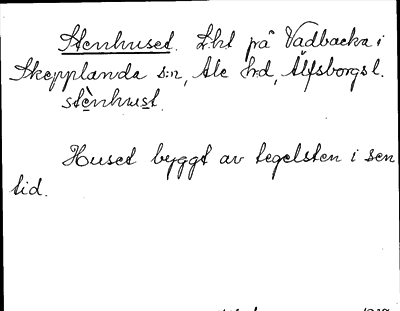 Stenhuset. Lht på Vadbacka i
Skepplanda sn, Ale hd, Älfsborgs l.
stènhust.
Huset byggt av tegelsten i sen
tid.